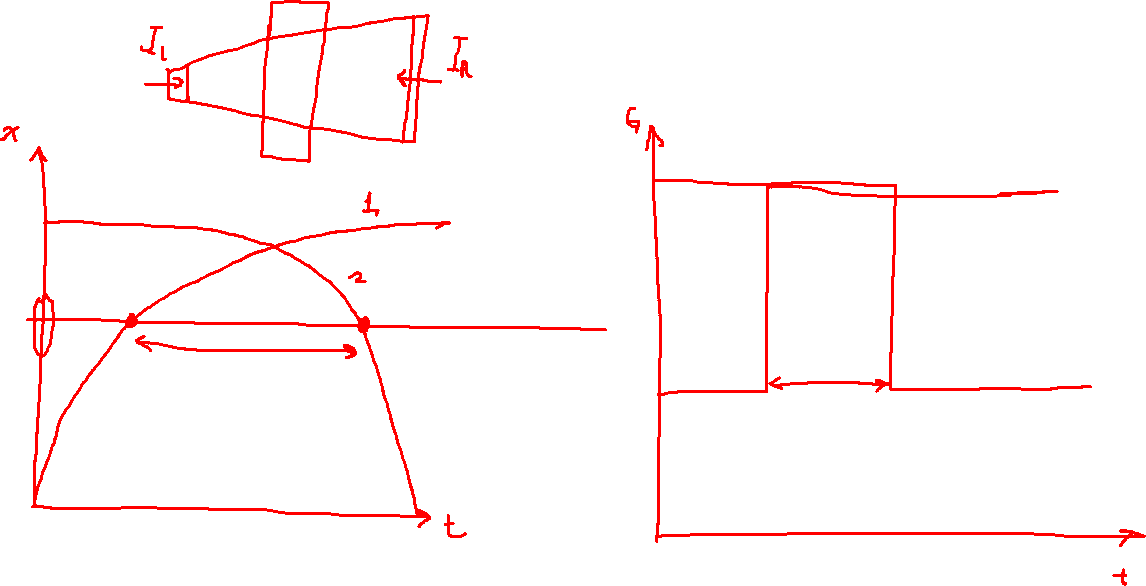 I₁ I_R
x G
1,
2
t t